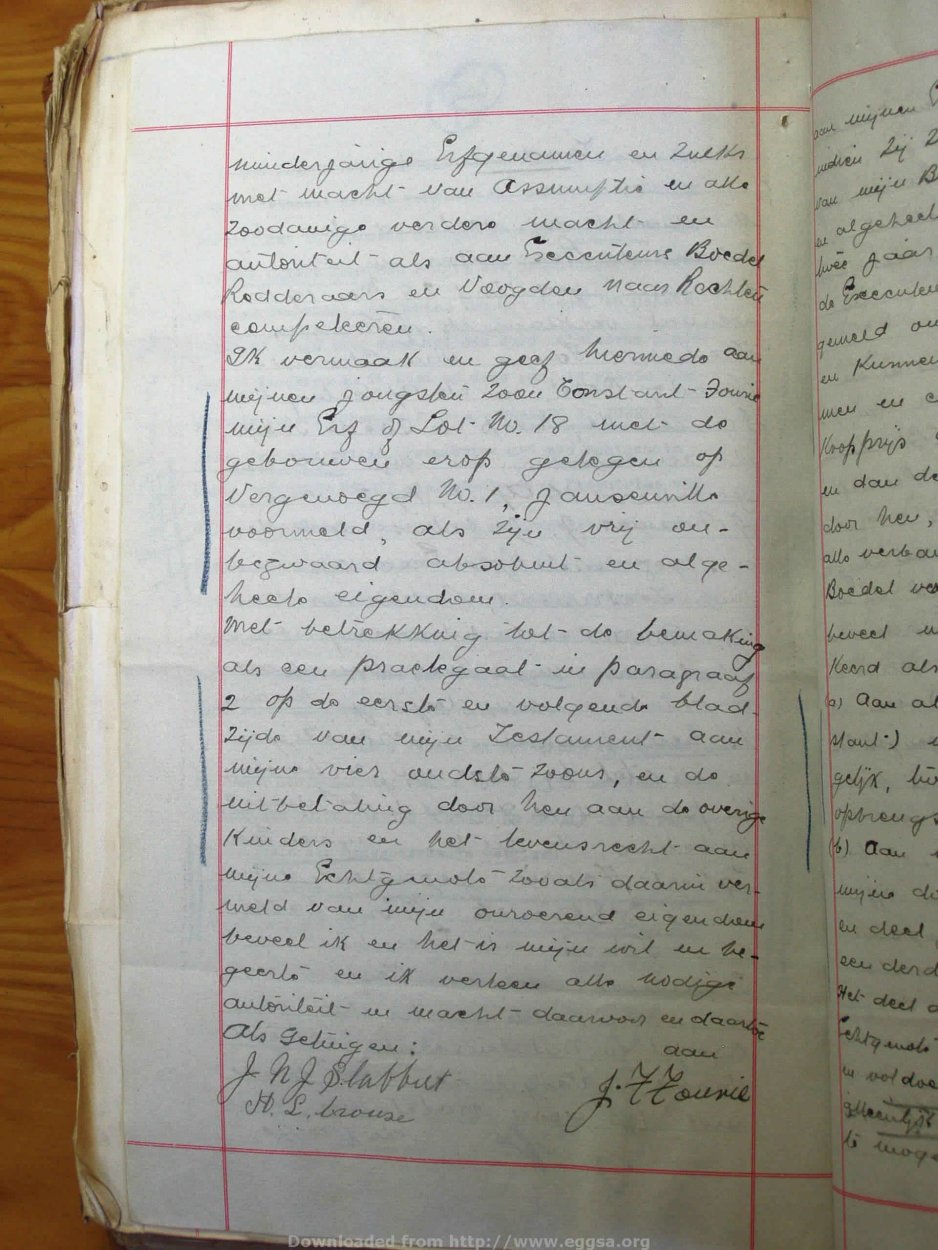 minderjarige Erfgenamen en zulks
met macht van Assumptie en alle
zoodanige verdere macht en
autoriteit als aan Executeurs Boedel
Redderaars en Voogden naar Rechten
competeeren.
Ik vermaak en geef hiermede aan
mijnen jongsten zoon Constant Fourie
mijn Erf of Lot No. 18 met de
gebouwen erop gelegen op
Vergenoegd No. 1, Jansenville
voormeld, als zijn vrij on-
bezwaard absoluut en alge-
heele eigendom.
Met betrekking tot de bemaking
als een praelegaat in paragraaf
2 op de eerste en volgende blad-
zijde van mijn Testament aan
mijne vier oudste zoons, en de
uitbetaling door hen aan de overige
Kinders en het levensrecht aan
mijne Echtgenote zooals daarin ver-
meld van mijn onroerend eigendom
beveel ik en het is mijn wil en be-
geerte en ik verleen alle nodige
autoriteit en macht daarvoor en daartoe
Als Getuigen:
aan
J N J Slabbert
J. F Fourie
H. L. Crouse
aan mijnen
indien zij
van mijn B
en algeheel
twee jaar
de Executeu
gemeld
en Kunnen
men en
Koopprijs
en dan de
door hen,
alle
Boedel
beveel
Keerd als
(a) Aan al
stant)
gelijk,
opbrengs
(b) Aan
mijne
en deel
een derd
Het deel
Echtgenote
en voldoe
te moge
Downloaded from http://www.eggsa.org